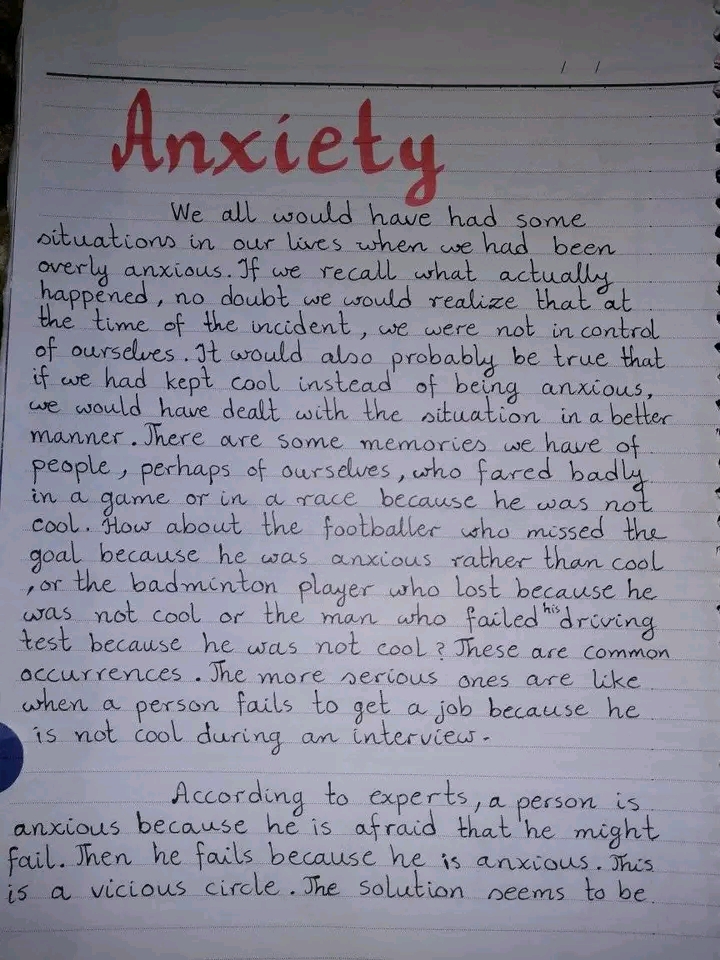 / /
Anxiety
We all would have had some
situations in our lives when we had been
overly anxious. If we recall what actually
happened, no doubt we would realize that at
the time of the incident, we were not in control
of ourselves. It would also probably be true that
if we had kept cool instead of being anxious,
we would have dealt with the situation in a better
manner. There are some memories we have of
people, perhaps of ourselves, who fared badly
in a game or in a race because he was not
cool. How about the footballer who missed the
goal because he was anxious rather than cool
, or the badminton player who lost because he
was not cool or the man who failed his driving
test because he was not cool? These are common
occurrences. The more serious ones are like
when a person fails to get a job because he
is not cool during an interview.
According to experts, a person is
anxious because he is afraid that he might
fail. Then he fails because he is anxious. This
is a vicious circle. The solution seems to be